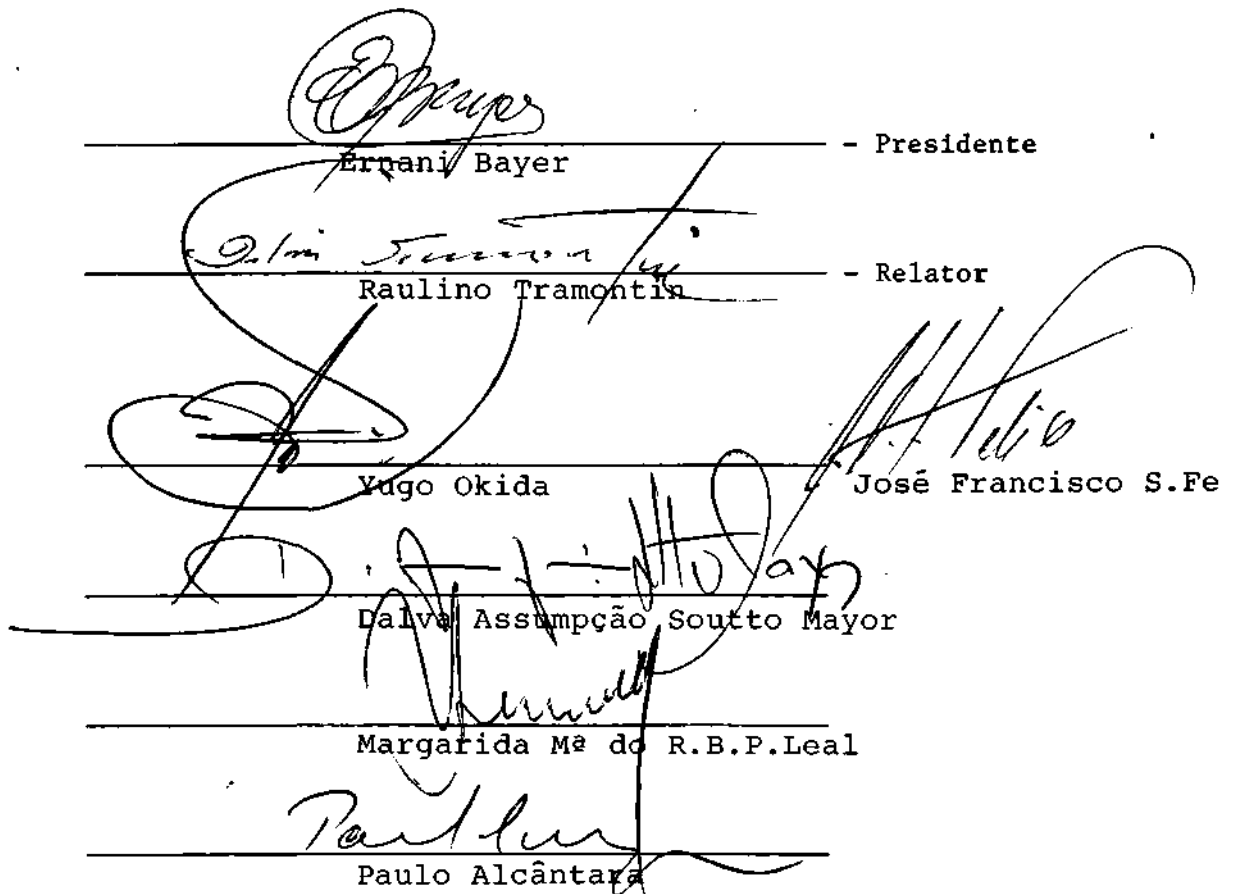 - Presidente
Ernani Bayer
- Relator
Raulino Tramontin
Yugo Okida
José Francisco S.Fe
Dalva Assumpção Soutto Mayor
Margarida Mª do R.B.P.Leal
Paulo Alcântara